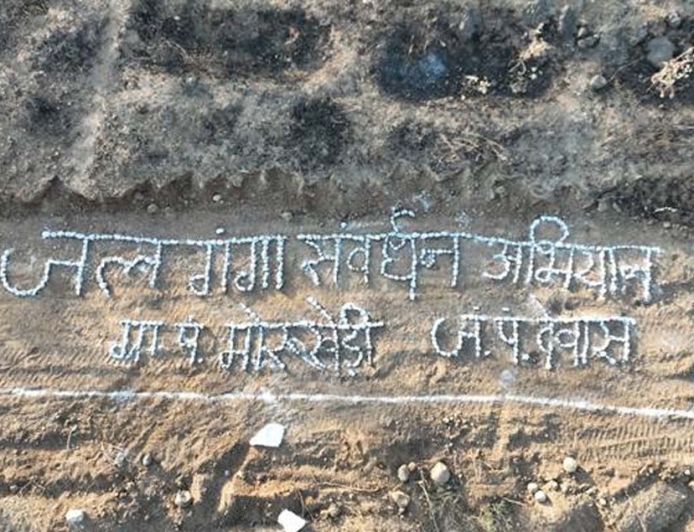 जल गंगा संवर्धन अभियान
ग्रा. पं. मोरुखेड़ी जं. पं. देवास